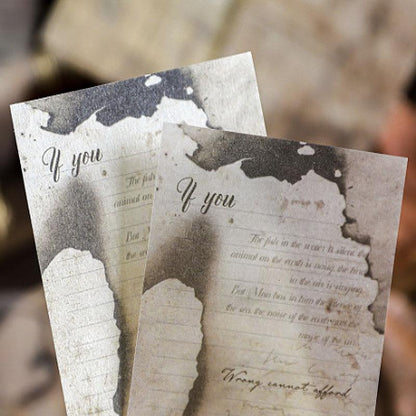 If you
The fish in the water is silent, the
animal on the earth is noisy, the bird
in the air is singing.
But Man has in him the silence of
the sea, the noise of the earth and the
music of the air.
Wrong cannot afford
If you
The fish in
animal on the
But Man
the sea